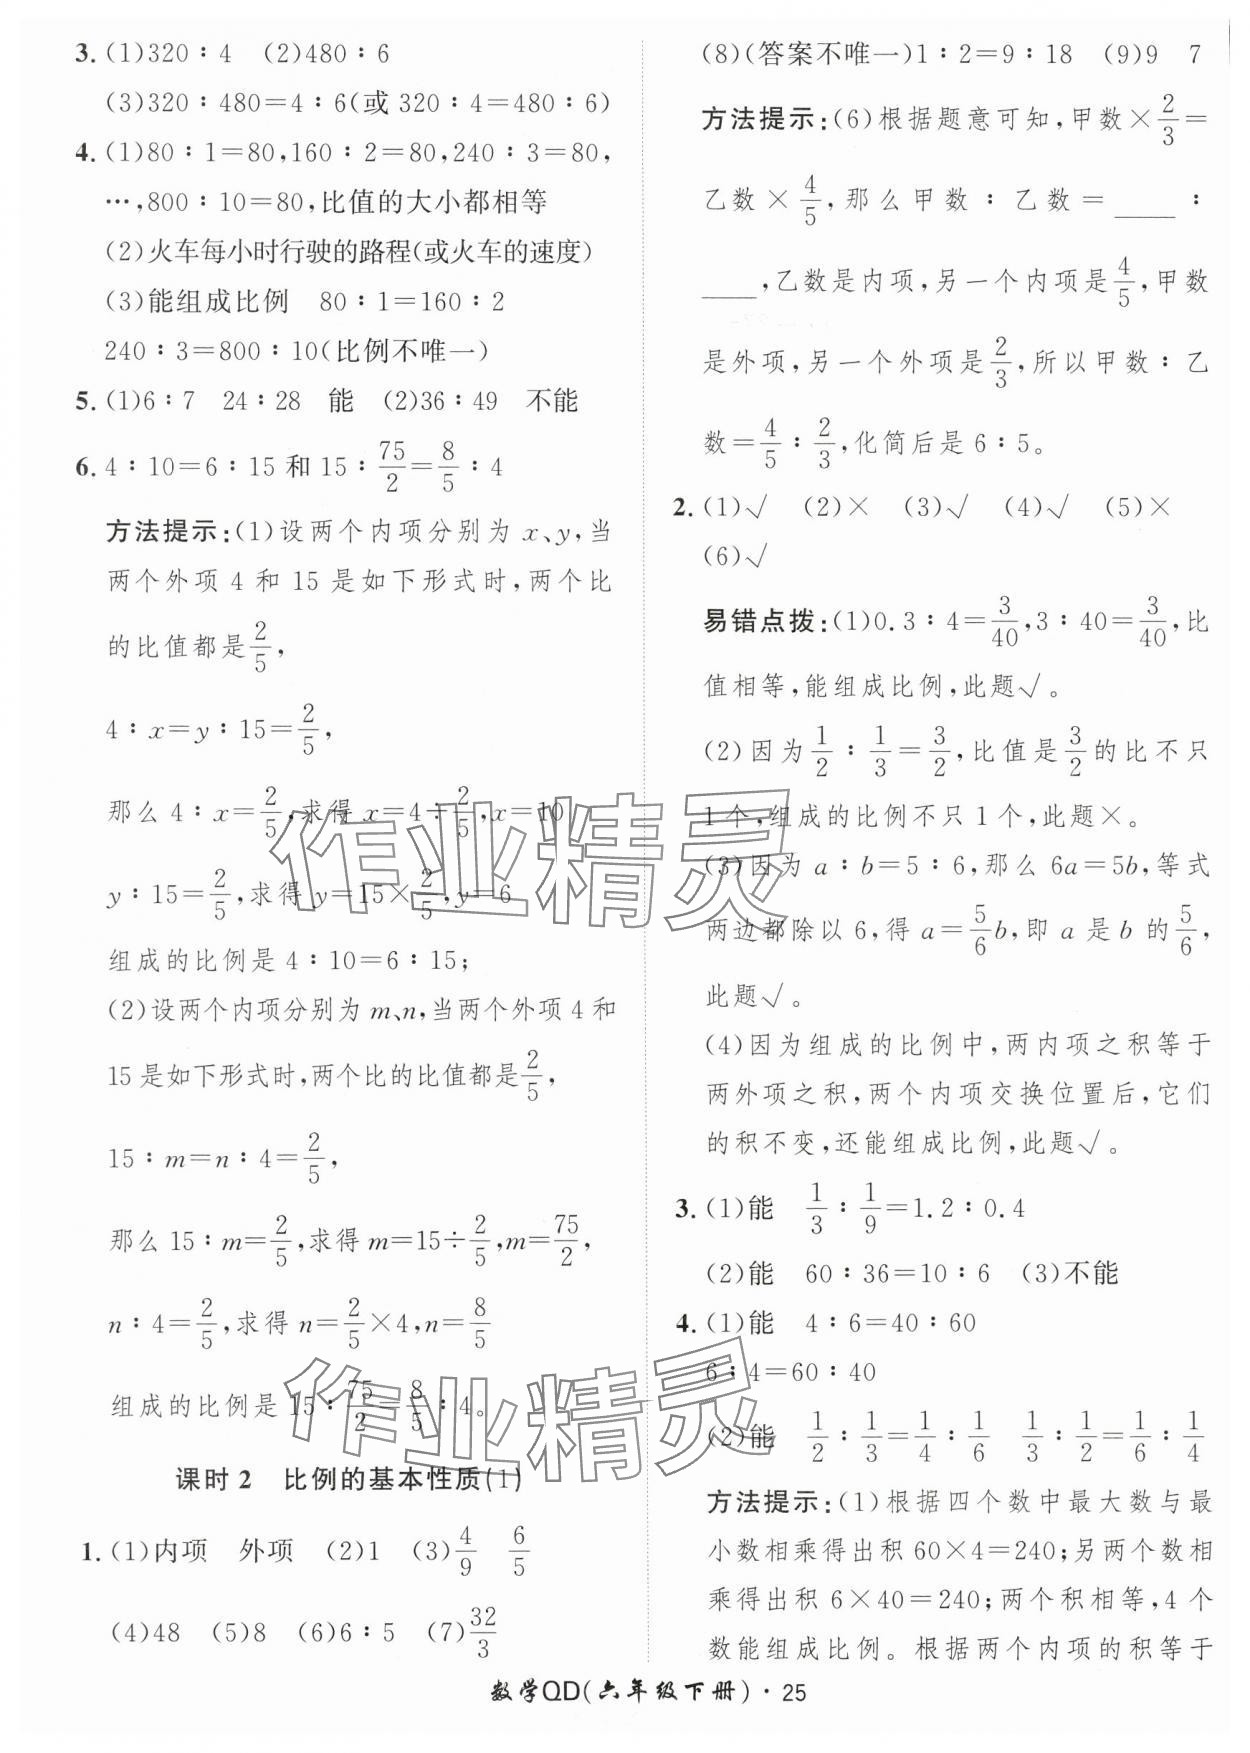 3. (1)320∶4　(2)480∶6
(3)320∶480=4∶6(或 320∶4=480∶6)
4. (1)80∶1=80,160∶2=80,240∶3=80,
…,800∶10=80,比值的大小都相等
(2)火车每小时行驶的路程(或火车的速度)
(3)能组成比例　80∶1=160∶2
240∶3=800∶10(比例不唯一)
5. (1)6∶7　24∶28　能　(2)36∶49　不能
6. 4∶10=6∶15 和 15∶75/2=8/5∶4
方法提示:(1)设两个内项分别为 x、y,当
两个外项 4 和 15 是如下形式时,两个比
的比值都是2/5,
4∶x=y∶15=2/5,
那么 4∶x=2/5,求得 x=4÷2/5,x=10
y∶15=2/5,求得 y=15×2/5,y=6
组成的比例是 4∶10=6∶15;
(2)设两个内项分别为 m、n,当两个外项 4 和
15 是如下形式时,两个比的比值都是2/5,
15∶m=n∶4=2/5,
那么 15∶m=2/5,求得 m=15÷2/5,m=75/2,
n∶4=2/5,求得 n=2/5×4,n=8/5
组成的比例是 15∶75/2=8/5∶4。
课时 2　比例的基本性质(1)
1. (1)内项　外项　(2)1　(3)4/9　6/5
(4)48　(5)8　(6)6∶5　(7)32/3
(8)(答案不唯一)1∶2=9∶18　(9)9　7
方法提示:(6)根据题意可知,甲数×2/3=
乙数×4/5,那么甲数∶乙数=____∶
____,乙数是内项,另一个内项是4/5,甲数
是外项,另一个外项是2/3,所以甲数∶乙
数=4/5∶2/3,化简后是 6∶5。
2. (1)√　(2)×　(3)√　(4)√　(5)×
(6)√
易错点拨:(1)0.3∶4=3/40,3∶40=3/40,比
值相等,能组成比例,此题√。
(2)因为1/2∶1/3=3/2,比值是3/2的比不只
1 个,组成的比例不只 1 个,此题×。
(3)因为 a∶b=5∶6,那么 6a=5b,等式
两边都除以 6,得 a=5/6b,即 a 是 b 的5/6,
此题√。
(4)因为组成的比例中,两内项之积等于
两外项之积,两个内项交换位置后,它们
的积不变,还能组成比例,此题√。
3. (1)能　1/3∶1/9=1.2∶0.4
(2)能　60∶36=10∶6　(3)不能
4. (1)能　4∶6=40∶60
6∶4=60∶40
(2)能　1/2∶1/3=1/4∶1/6　1/3∶1/2=1/6∶1/4
方法提示:(1)根据四个数中最大数与最
小数相乘得出积 60×4=240;另两个数相
乘得出积 6×40=240;两个积相等,4 个
数能组成比例。根据两个内项的积等于
数学QD(六年级下册)·25
作业精灵
作业精灵